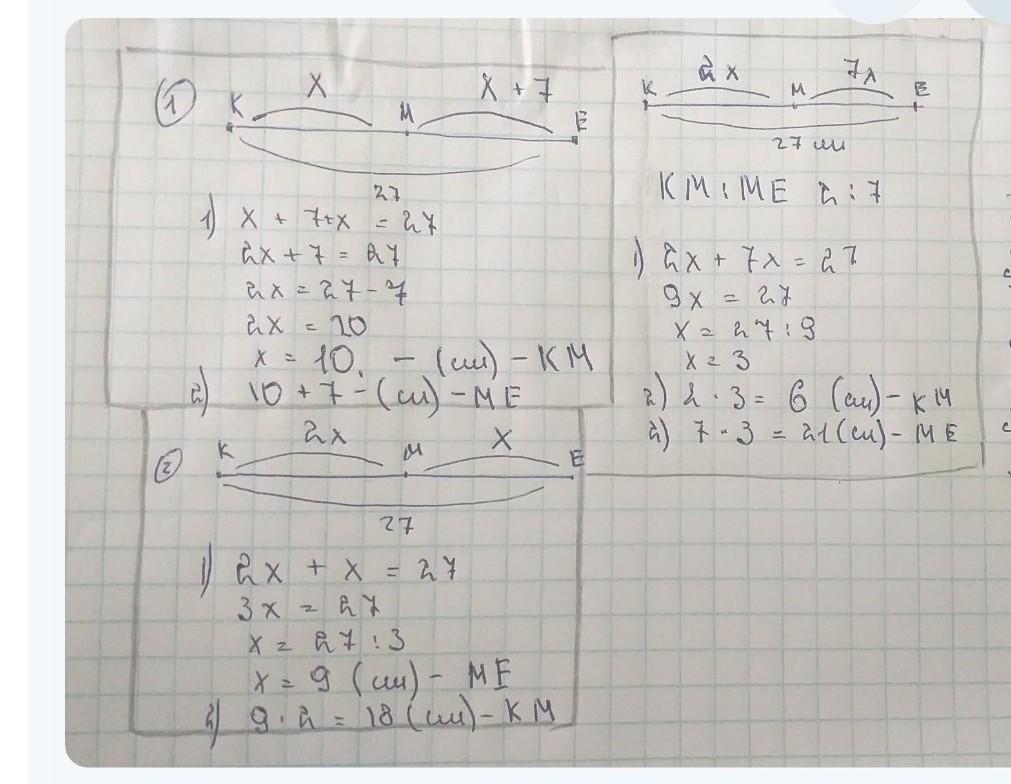 1
К X М X + 7 Е
27
1) X + 7+X = 27
2X + 7 = 27
2X = 27 - 7
2X = 20
X = 10. - (см) - КМ
2) 10 + 7 - (см) - МЕ
2
К 2X М X Е
27
1) 2X + X = 27
3X = 27
X = 27 : 3
X = 9 (см) - МЕ
2) 9 · 2 = 18 (см) - КМ
К 2X М 7X Е
27 см
КМ : МЕ 2 : 7
1) 2X + 7X = 27
9X = 27
X = 27 : 9
X = 3
2) 2 · 3 = 6 (см) - КМ
2) 7 · 3 = 21 (см) - МЕ